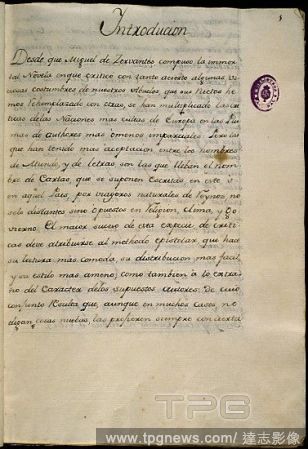 Introducion
Desde que Miguel de Cervantes compuso la inmor
tal Novela en que critico con tanto acierto algunas vi
ciosas costumbres de nuestros Abuelos que sus Nietos he
mos reemplazado con otras, se han multiplicado las cri
ticas de las Naciones mas cultas de Europa en las Plu
mas de authores mas o menos imparciales. Pero las
que han tenido mas aceptacion entre los hombres
de Mundo, y de Letras, son las que llevan el nom
bre de Cartas, que se suponen escritas en este o
en aquel Pais, por viajeros naturales de Reynos no
solo distantes sino opuestos en Religion, Clima, y Go
vierno. El maior suceso de esta especie de criti
cas deve atribuirse al methodo epistolar, que hace
su lectura mas comoda, su distribucion mas facil,
y su estilo mas ameno; como tambien à lo extra
ño del Caracter de los supuestos autores: De cuio
conjunto resulta que, aunque en muchos casos no
digan cosas nuevas, las profieren siempre con cierta
TPG
www.tpgnews.com/達志影像